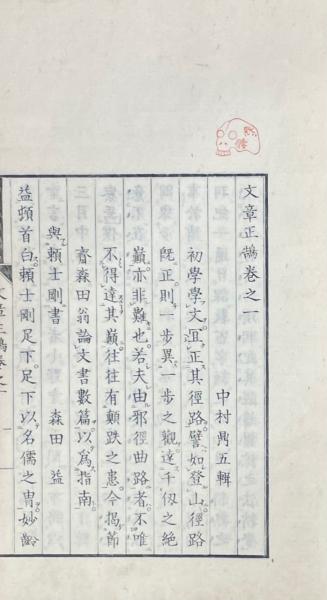 文章正鵠卷之一
中村鼎五輯
初學學文宜正其徑路譬如登山徑路
既正則一步異一步之觀達千仞之絶
巓亦非難也若夫由邪徑曲路者不唯
不得達其巓往往有顚跌之患今揭節
齋森田翁論文書數篇以爲指南
與賴士剛書 森田益
益頓首白賴士剛足下足下以名儒之冑妙齡